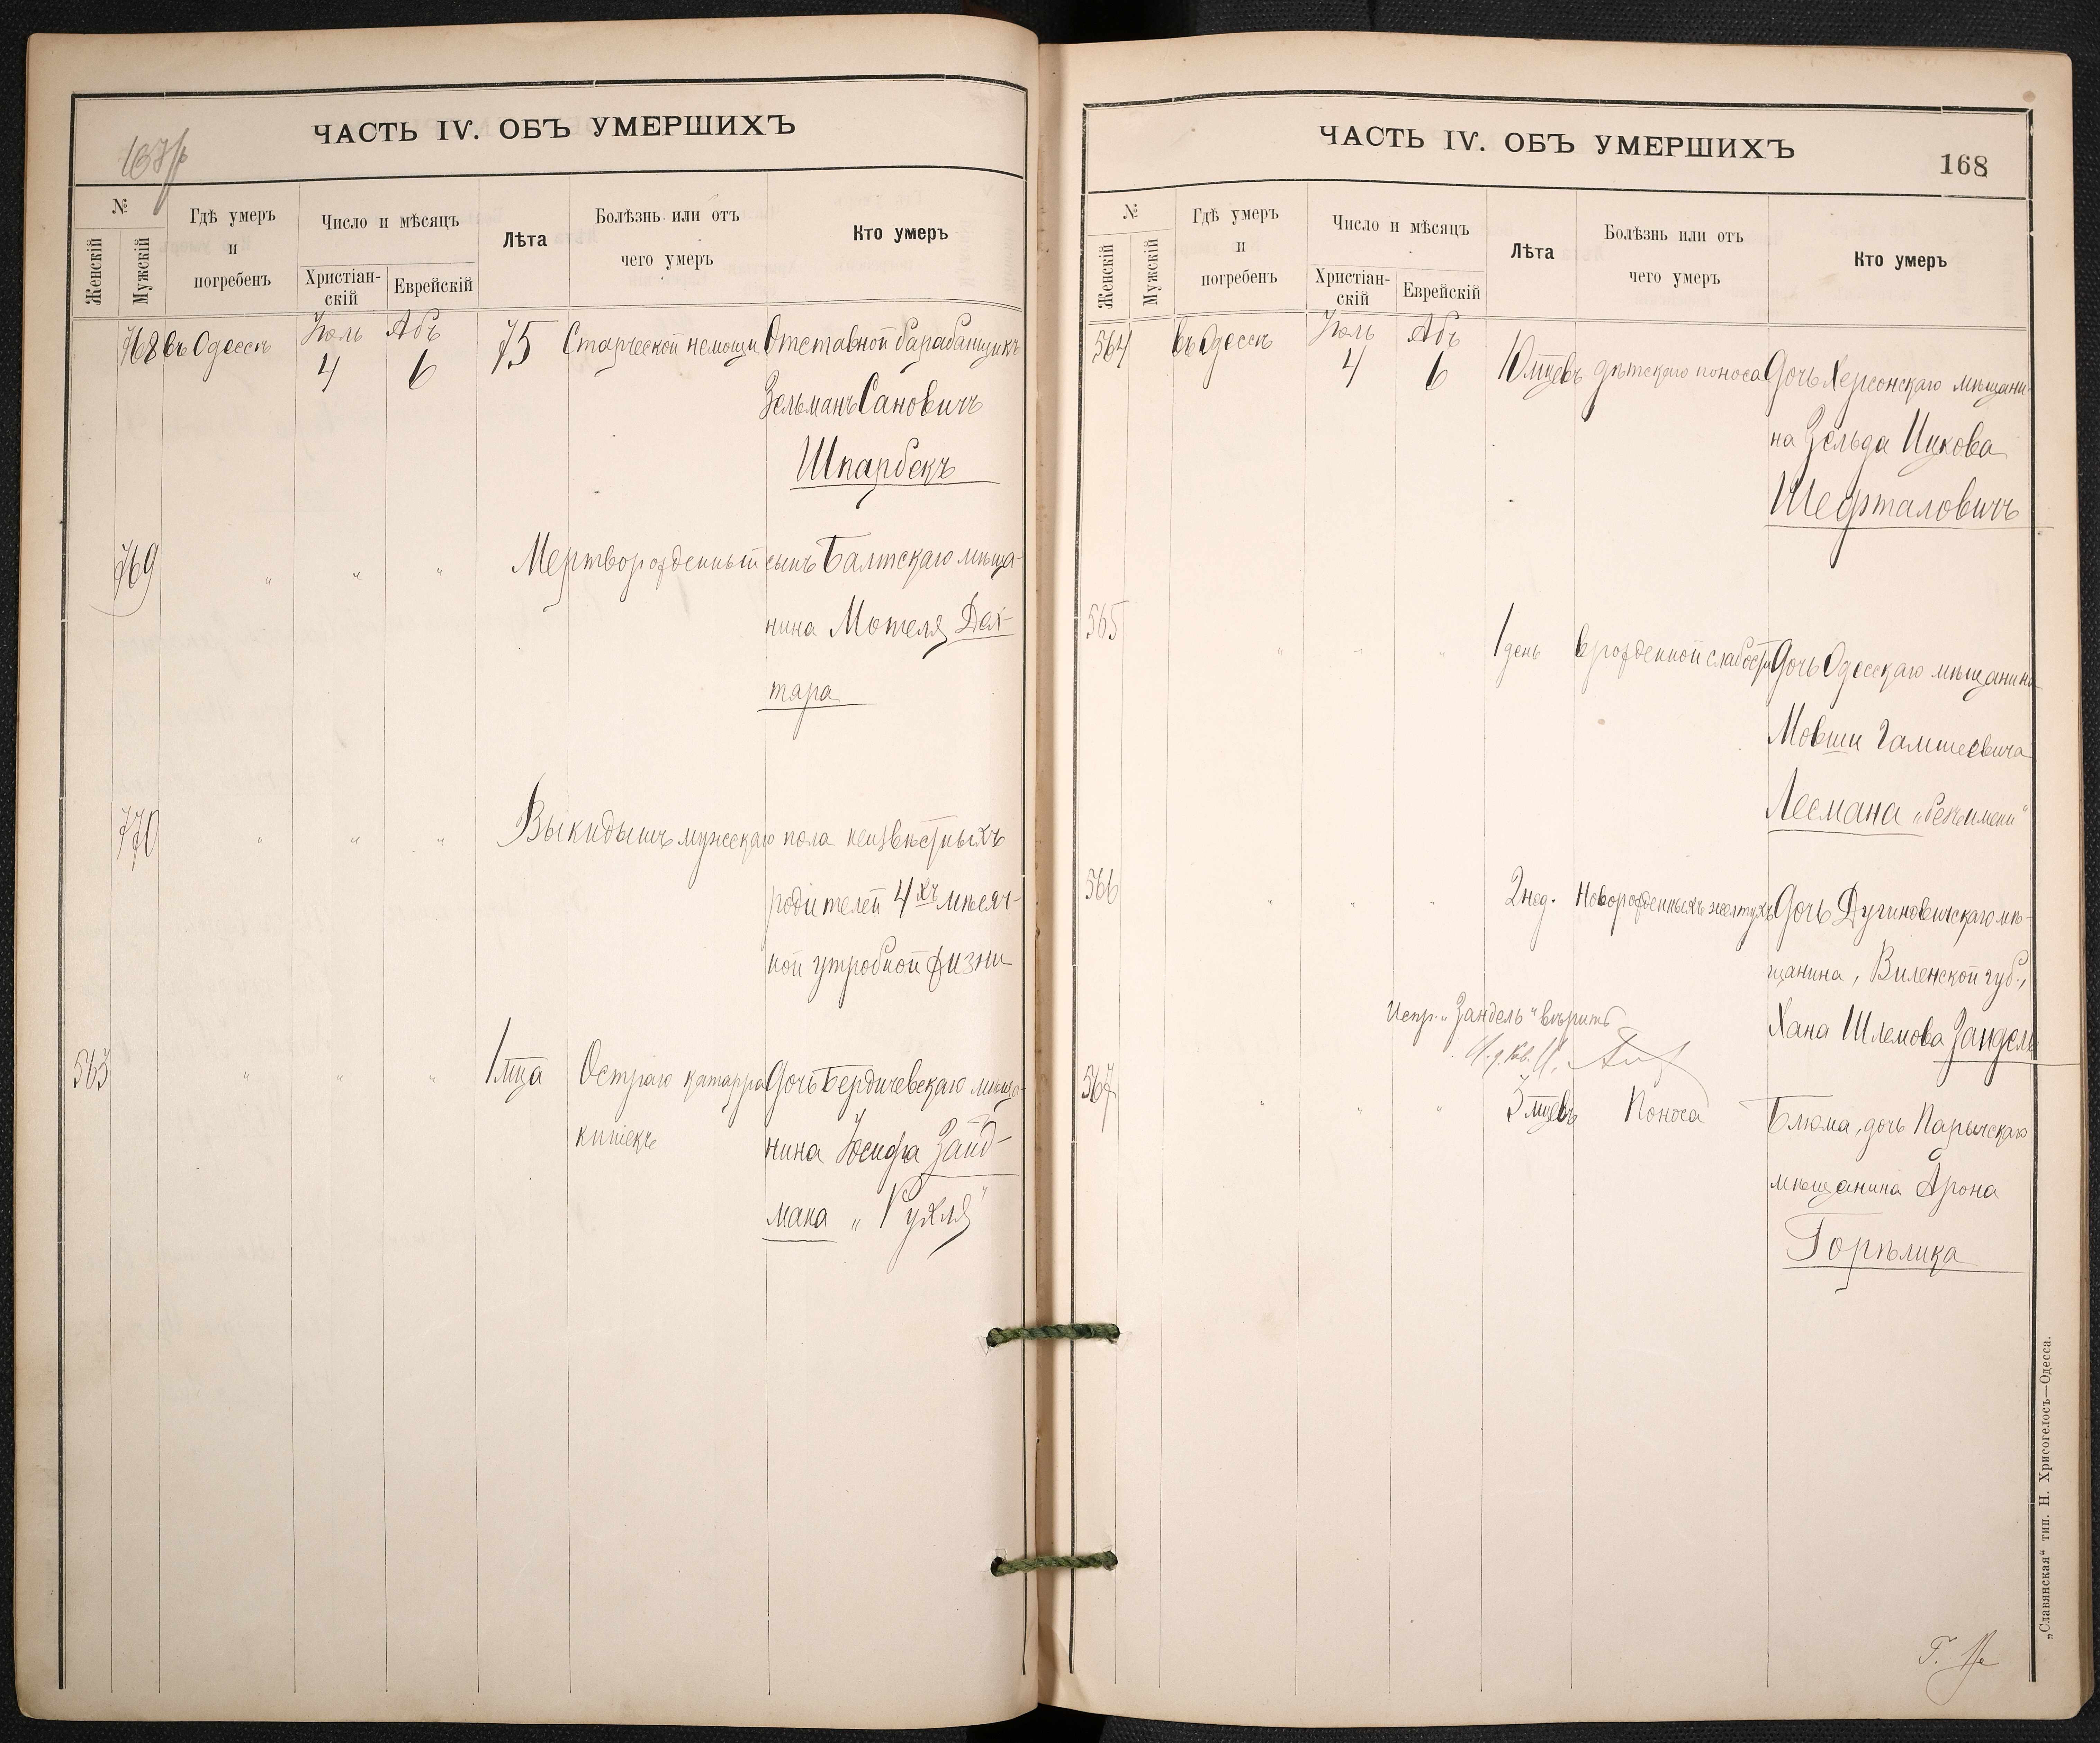 ЧАСТЬ IV. ОБЪ УМЕРШИХЪ
№
Женскій
Мужскій
Гдѣ умеръ
и
погребенъ
Число и мѣсяцъ
Христіан-
скій
Еврейскій
Лѣта
Болѣзнь или отъ
чего умеръ
Кто умеръ
768 въ Одессѣ Іюль 4 Абъ 6 75 Старческой немощи Отставной барабанщикъ
Зельманъ Сановичъ
Шпарбекъ
769 " " " Мертворожденный сынъ Балтскаго мѣща-
нина Мотеля Дех-
тяра
770 " " " Выкидышъ мужескаго пола неизвѣстныхъ
родителей 4хъ мѣсяч-
ной утробной жизни
563 " " " 1 мца Остраго катарра Дочь Бердичевскаго мѣща-
кишекъ нина Іосифа Зайд-
мана „Рухля"
ЧАСТЬ IV. ОБЪ УМЕРШИХЪ
168
№
Женскій
Мужскій
Гдѣ умеръ
и
погребенъ
Число и мѣсяцъ
Христіан-
скій
Еврейскій
Лѣта
Болѣзнь или отъ
чего умеръ
Кто умеръ
564 въ Одессѣ Іюль 4 Абъ 6 10 мцевъ дѣтскаго поноса Дочь Херсонскаго мѣщани-
на Зельда Ицкова
Шефталовичъ
565 " " " 1 день врожденной слабости Дочь Одесскаго мѣщанина
Мовши
Лесмана „безъ имени"
566 " " " 2 нед. Новорожденныхъ желтухъ Дочь мѣ-
щанина, Виленской губ.,
Хана Шлемова Зандель
Испр. „Зандель" вѣрить
567 " " " 3 мцевъ Поноса Блюма, дочь Паричскаго
мѣщанина Арона
Горѣлика
„Славянская" тип. Н. Хрисогелосъ—Одесса.